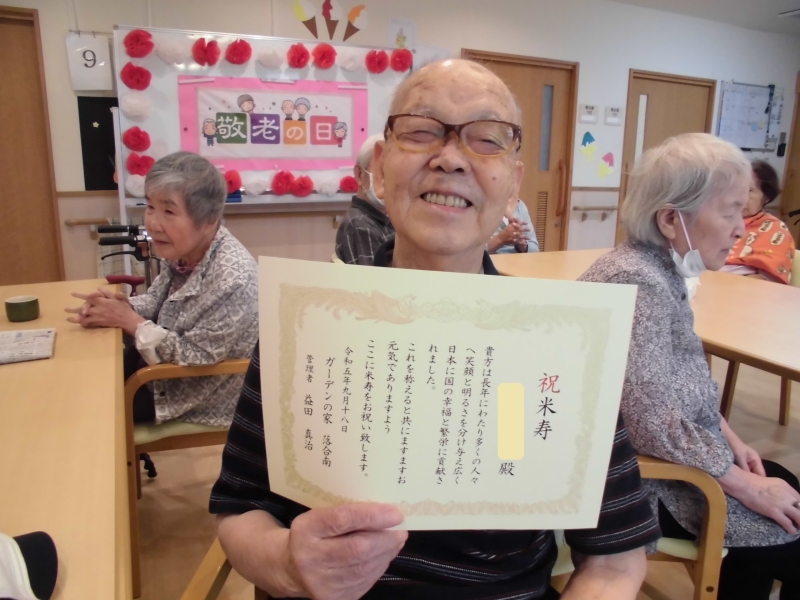 9
敬老の日
祝 米寿
殿
貴方は長年にわたり多くの人々
へ笑顔と明るさを分け与え広く
日本に国の幸福と繁栄に貢献さ
れました。
これを称えると共にますますお
元気でありますよう
ここに米寿をお祝い致します。
令和五年九月十八日
ガーデンの家 落合南
管理者 益田 真治